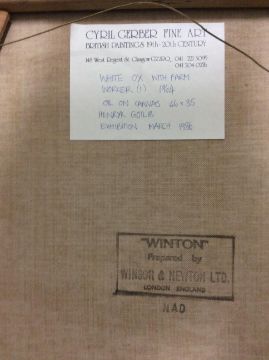 CYRIL GERBER FINE ART
BRITISH PAINTINGS 19th-20th CENTURY
148 West Regent St. Glasgow G2 2RQ, 041 221 3095
041 204 0276
WHITE OX WITH FARM
WORKER (1) 1964
OIL ON CANVAS 46 x 35
HENRYK GOTLIB
EXHIBITION MARCH 1986
"WINTON"
Prepared by
WINSOR & NEWTON LTD.
LONDON ENGLAND
NAD